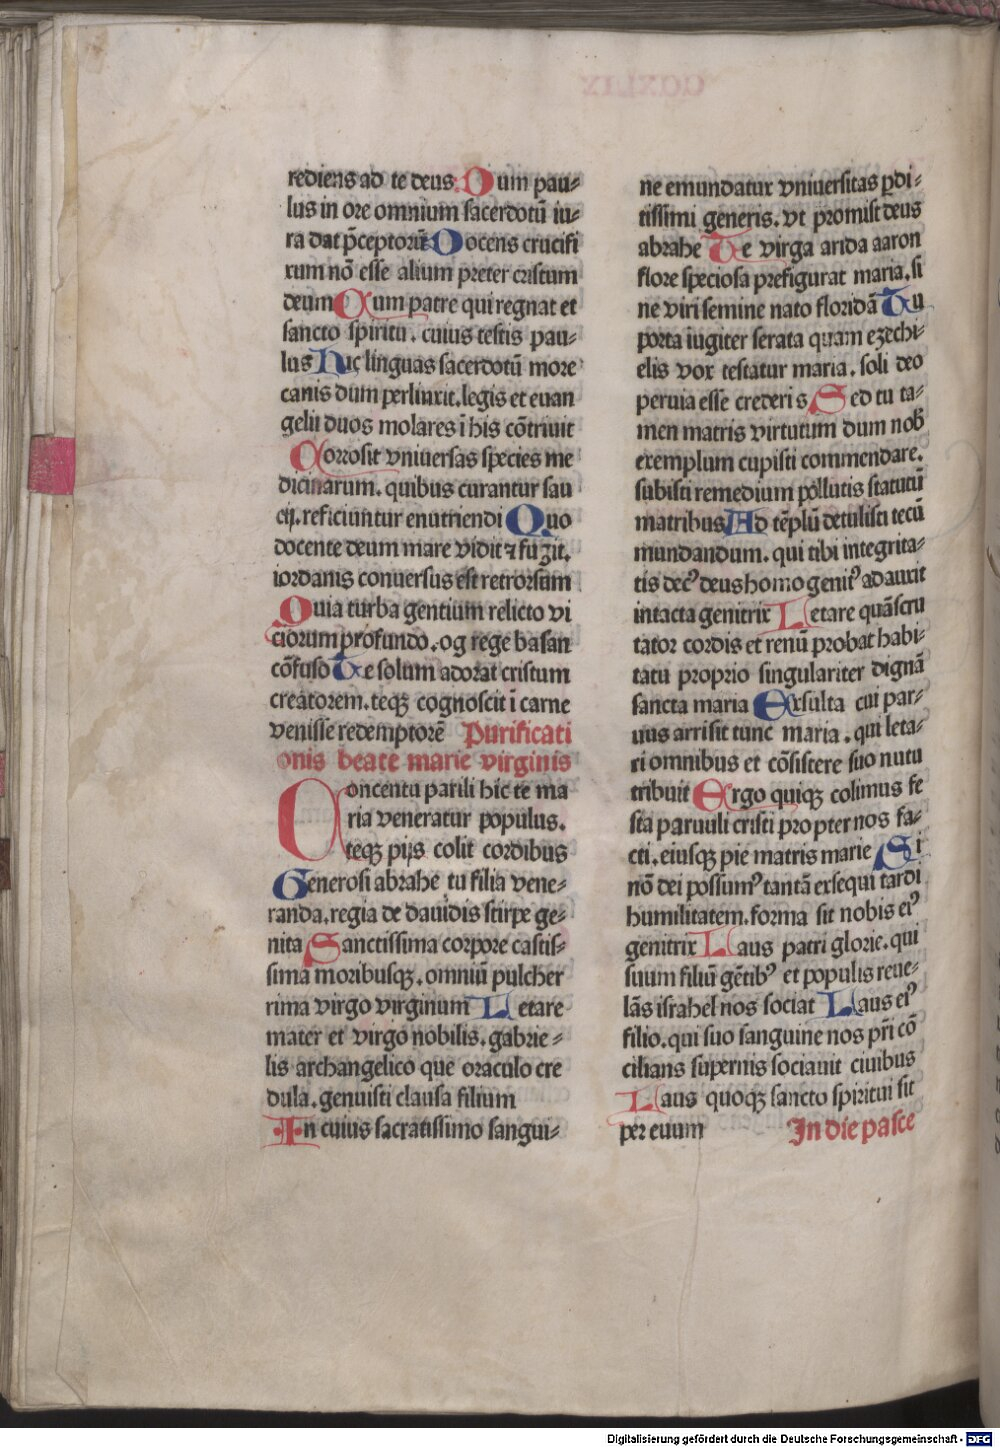 rediens ad te deus. Dum pau-
lus in ore omnium sacerdotū iu-
ra dat p̄ceptorū Docens crucifi
xum nō esse alium preter cristum
deum Cum patre qui regnat et
sancto spiritu. cuius testis pau-
lus Huic linguas sacerdotū more
canis dum perlinxit. legis et euan
gelii duos molares ī his cōtriuit
Corrosit vniuersas species me
dicinarum. quibus curantur sau
cij. reficiuntur enutriendi Quo
docente deum mare vidit ⁊ fugit.
iordanis conuersus est retrorsum
Quia turba gentium relicto vi
ciorum profundo. og rege basan
cōfuso Te solum adorat cristum
creatorem. teqꝫ cognoscit ī carne
venisse redemptorē Purificati
onis beate marie virginis
Concentu parili hic te ma
ria veneratur populus.
teqꝫ pijs colit cordibus
Generosi abrahe tu filia vene-
randa. regia de dauidis stirpe ge-
nita Sanctissima corpore castis-
sima moribusqꝫ. omniū pulcher
rima virgo virginum Letare
mater et virgo nobilis. gabrie-
lis archangelico que oraculo cre
dula. genuisti clausa filium
In cuius sacratissimo sangui-
ne emundatur vniuersitas ꝑdi-
tissimi generis. vt promisit deus
abrahe Te virga arida aaron
flore speciosa prefigurat maria. si
ne viri semine nato floridā Tu
porta iugiter serata quam ezechi-
elis vox testatur maria. soli deo
peruia esse crederis Sed tu ta-
men matris virtutum dum nob̄
exemplum cupisti commendare.
subisti remedium pollutis statutū
matribus Ad tēplū detulisti tecū
mundandum. qui tibi integrita-
tis decꝰ deus homo genitꝰ adauxit
intacta genitrix Letare quā scru
tator cordis et renū probat habi-
tatu proprio singulariter dignā
sancta maria Exsulta cui par-
uus arrisit tunc maria. qui leta-
ri omnibus et cōsistere suo nutu
tribuit Ergo quiqꝫ colimus fe
sta paruuli cristi propter nos fa-
cti. eiusqꝫ pie matris marie Si
nō dei possumꝰ tantā exsequi tardi
humilitatem. forma sit nobis eiꝰ
genitrix Laus patri glorie. qui
suum filiū gētibꝰ et populis reue-
lās israhel nos sociat Laus eiꝰ
filio. qui suo sanguine nos pr̄i cō
cilians supernis sociauit ciuibus
Laus quoqꝫ sancto spiritui sit
per euum In die pasce
Digitalisierung gefördert durch die Deutsche Forschungsgemeinschaft - DFG